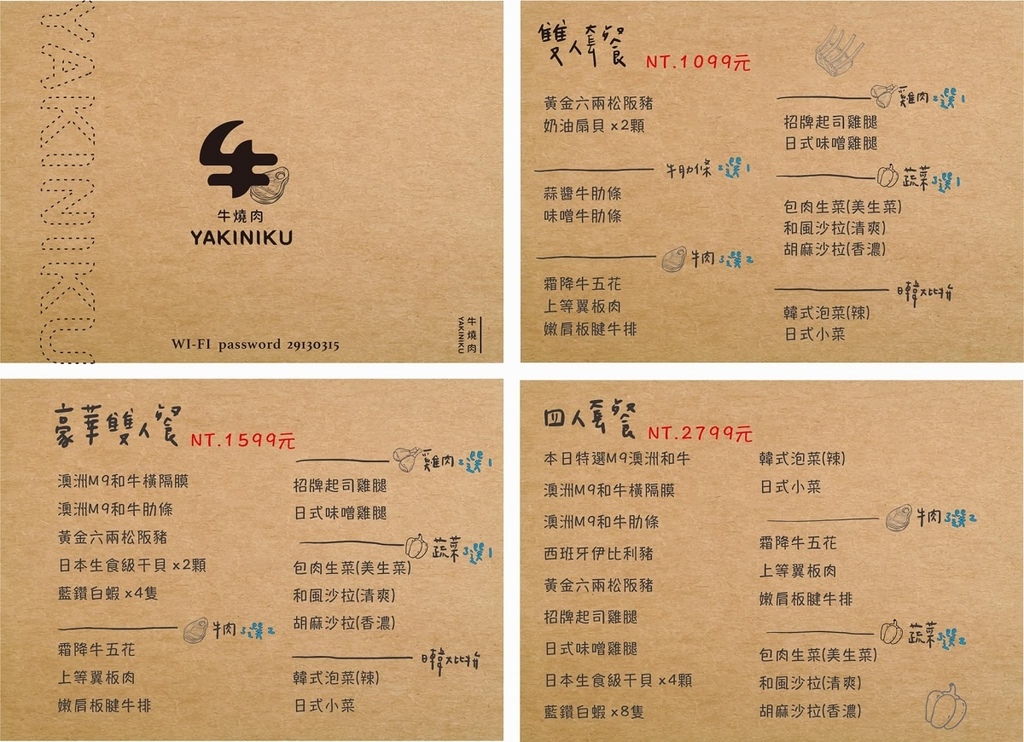 YAKINIKU
牛
牛燒肉
YAKINIKU
WI-FI password 29130315
牛燒肉
YAKINIKU
雙人套餐 NT.1099元
黃金六兩松阪豬
奶油扇貝x2顆
牛肋條2選1
蒜醬牛肋條
味噌牛肋條
牛肉3選2
霜降牛五花
上等翼板肉
嫩肩板腱牛排
雞肉2選1
招牌起司雞腿
日式味噌雞腿
蔬菜3選1
包肉生菜(美生菜)
和風沙拉(清爽)
胡麻沙拉(香濃)
日韓大比拚
韓式泡菜(辣)
日式小菜
豪華雙人餐 NT.1599元
澳洲M9和牛橫隔膜
澳洲M9和牛肋條
黃金六兩松阪豬
日本生食級干貝x2顆
藍鑽白蝦x4隻
牛肉3選2
霜降牛五花
上等翼板肉
嫩肩板腱牛排
雞肉2選1
招牌起司雞腿
日式味噌雞腿
蔬菜3選1
包肉生菜(美生菜)
和風沙拉(清爽)
胡麻沙拉(香濃)
日韓大比拚
韓式泡菜(辣)
日式小菜
四人套餐 NT.2799元
本日特選M9澳洲和牛
澳洲M9和牛橫隔膜
澳洲M9和牛肋條
西班牙伊比利豬
黃金六兩松阪豬
招牌起司雞腿
日式味噌雞腿
日本生食級干貝x4顆
藍鑽白蝦x8隻
韓式泡菜(辣)
日式小菜
牛肉3選2
霜降牛五花
上等翼板肉
嫩肩板腱牛排
蔬菜3選2
包肉生菜(美生菜)
和風沙拉(清爽)
胡麻沙拉(香濃)